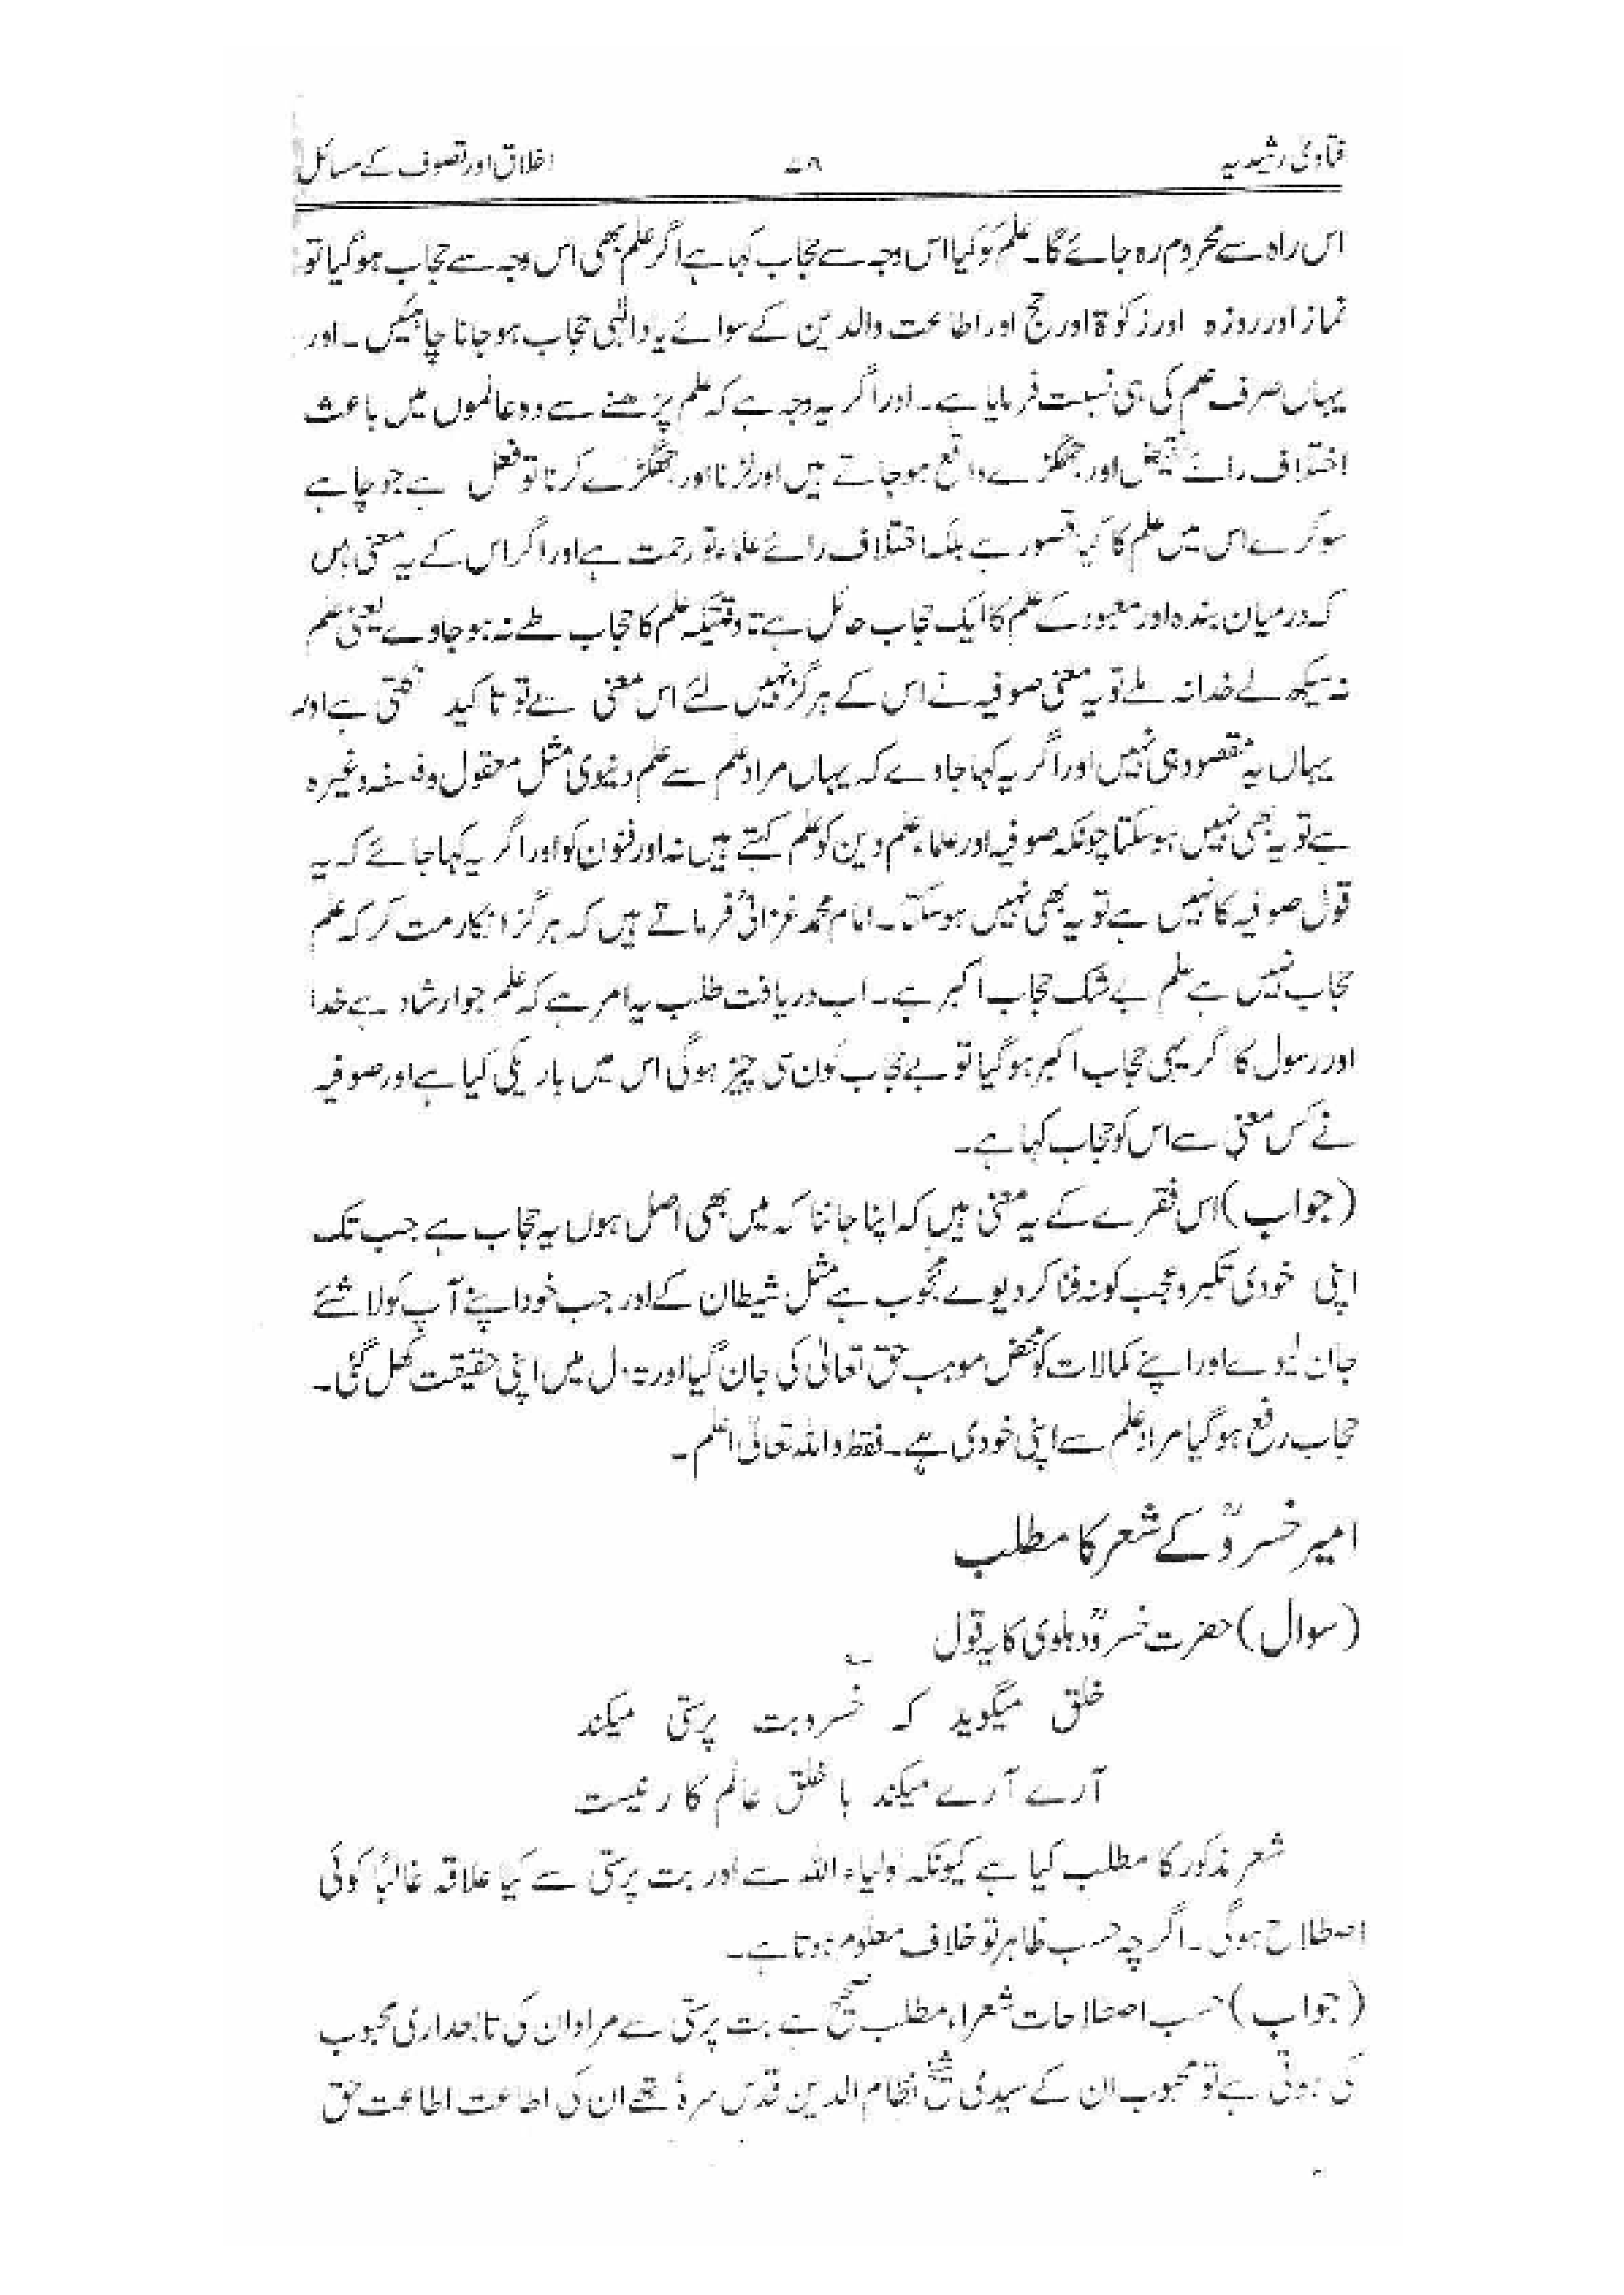 فتاویٰ رشیدیہ
اخلاق اور تصوف کے مسائل
اس راہ سے محروم رہ جائے گا۔ علم کو کیا اس وجہ سے حجاب کہا ہے اگر علم بھی اس وجہ سے حجاب ہو گیا تو
نماز اور روزہ اور زکوٰۃ اور حج اور اطاعت والدین کے سوائے یادالٰہی حجاب ہو جانا چاہئیں۔ اور
یہاں صرف علم کی ہی نسبت فرمایا ہے۔ اور اگر یہ وجہ ہے کہ علم پڑھنے سے دو عالموں میں باعث
اختلاف رائے اور جھگڑے واقع ہو جاتے ہیں اور لڑنا اور جھگڑے کرنا تو فعل ہے جو چاہے
سو کرے اس میں علم کا کیا قصور ہے بلکہ اختلاف رائے علماء تو رحمت ہے اور اگر اس کے یہ معنی ہیں
کہ درمیان بندہ اور معبود کے علم کا ایک حجاب حائل ہے تا وقتیکہ علم کا حجاب طے نہ ہو جاوے یعنی علم
نہ سیکھ لے خدا نہ ملے تو یہ معنی صوفیہ نے اس کے ہرگز نہیں لئے اس معنی سے تو تاکید نکلتی ہے اور
یہاں یہ مقصود ہی نہیں اور اگر یہ کہا جاوے کہ یہاں مراد علم سے علم دنیوی مثل معقول و فلسفہ وغیرہ
ہے تو یہ بھی نہیں ہو سکتا چونکہ صوفیہ اور علماء علم دین کو علم کہتے ہیں نہ اور فنون کو اور اگر یہ کہا جائے کہ یہ
قول صوفیہ کا نہیں ہے تو یہ بھی نہیں ہو سکتا۔ امام محمد غزالیؒ فرماتے ہیں کہ ہرگز انکار مت کر کہ علم
حجاب نہیں ہے علم بے شک حجاب اکبر ہے۔ اب دریافت طلب یہ امر ہے کہ علم جو ارشاد ہے خدا
اور رسول کا گر یہی حجاب اکبر ہو گیا تو بے حجاب کون سی چیز ہوگی اس میں باریکی کیا ہے اور صوفیہ
نے کس معنی سے اس کو حجاب کہا ہے۔
(جواب) اس فقرے کے یہ معنی ہیں کہ اپنا جاننا کہ میں بھی اصل ہوں یہ حجاب ہے جب تک
اپنی خودی تکبر و عجب کو نہ فنا کر دیوے محجوب ہے مثل شیطان کے اور جب خود اپنے آپ کو لاشئے
جان لیوے اور اپنے کمالات کو محض موہب حق تعالیٰ کی جان گیا اور تہ دل میں اپنی حقیقت کھل گئی۔
حجاب رفع ہو گیا مراد علم سے اپنی خودی ہے۔ فقط واللہ تعالیٰ اعلم۔
امیر خسروؒ کے شعر کا مطلب
(سوال) حضرت خسروؒ دہلوی کا یہ قول ؎
خلق میگوید کہ خسرو بت پرستی میکند
آرے آرے میکند با خلق عالم کار نیست
شعر مذکور کا مطلب کیا ہے کیونکہ اولیاء اللہ سے اور بت پرستی سے کیا علاقہ غالباً کوئی
اصطلاح ہوگی۔ اگرچہ حسب ظاہر تو خلاف معلوم ہوتا ہے۔
(جواب) حسب اصطلاحات شعراء مطلب صحیح ہے بت پرستی سے مراد ان کی تابعداری محبوب
کی ہوتی ہے تو محبوب ان کے سیدی شیخ نظام الدین قدس سرہٗ تھے ان کی اطاعت اطاعت حق